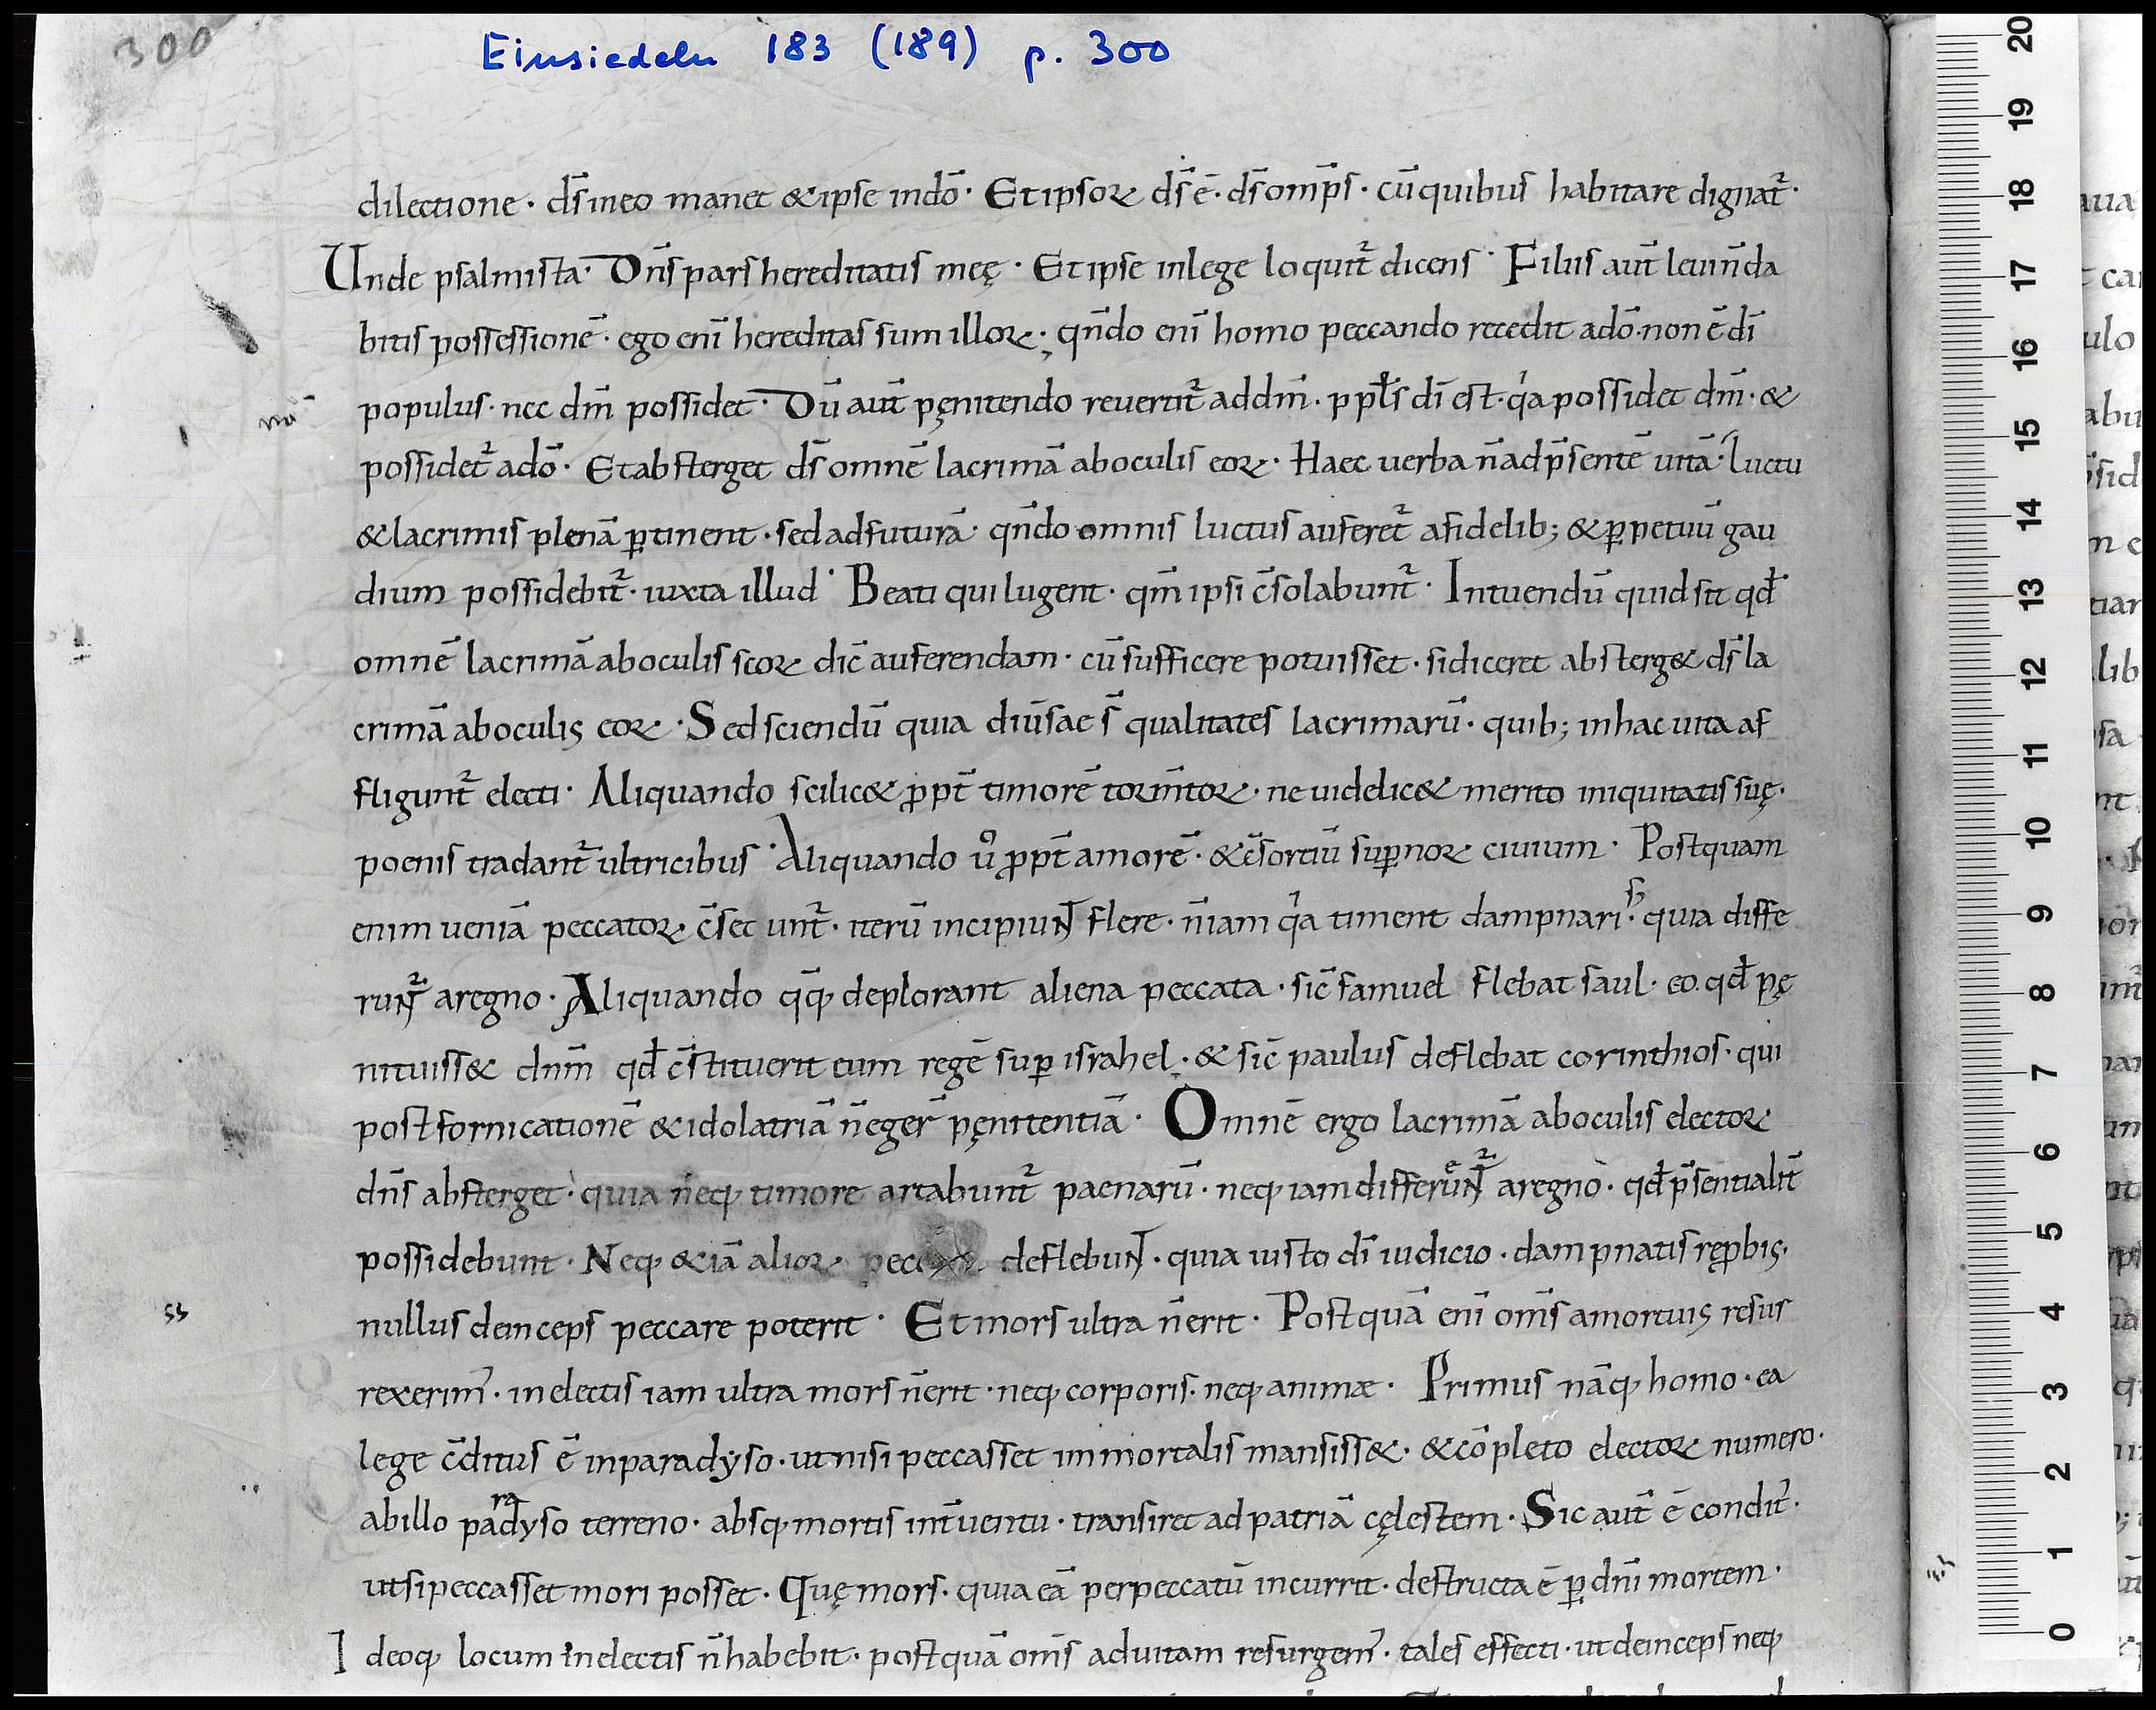 300
Einsiedeln 183 (189) p. 300
dilectione · ds̄ in eo manet & ipse in dō · Et ipsoꝝ ds̄ ē · ds̄ omp̄s · cū quibus habitare dignat᷑ ·
Unde psalmista · Dn̄s pars hereditatis meę · Et ipse in lege loquit᷑ dicens · Filiis aut̄ leui n̄ da
bitis possessionē · ego enī hereditas sum illoꝝ · qn̄do enī homo peccando recedit a dō · non ē dī
populus · nec dm̄ possidet · Dū aut̄ pęnitendo reuertit᷑ ad dm̄ · ppl̄s dī est · qͥa possidet dm̄ · &
possidet᷑ a dō · Et absterget ds̄ omnē lacrimā ab oculis eoꝝ · Haec uerba n̄ ad p̄sentē uitā · luctu
& lacrimis plenā ꝑtinent · sed ad futurā · qn̄do omnis luctus auferet᷑ a fidelib; & ꝑpetuū gau
dium possidebit᷑ · iuxta illud · Beati qui lugent · qm̄ ipsi c̄solabunt᷑ · Intuendū quid sit qd̄
omnē lacrimā ab oculis scoꝝ dic̄ auferendam · cū sufficere potuisset · si diceret absterg& ds̄ la
crimā ab oculis eoꝝ · Sed sciendū quia diūsae s̄ qualitates lacrimarū · quib; in hac uita af
fligunt᷑ electi · Aliquando scilic& ꝓpt̄ timorē torm̄toꝝ · ne uidelic& merito iniquitatis suę ·
poenis tradant᷑ ultricibus · Aliquando uͦ ꝓpt̄ amorē · & c̄sortiū suꝑnoꝝ ciuium · Postquam
enim ueniā peccatoꝝ c̄secunt᷑ · iterū incipiunt flere · n̄ iam qͥa timent dampnari · s; quia diffe
runt᷑ a regno · Aliquando qq̄; deplorant aliena peccata · sic̄ samuel flebat saul · eo qd̄ pę
nituiss& dnm̄ qd̄ c̄stituerit eum regē suꝑ israhel · & sic̄ paulus deflebat corinthios · qui
post fornicationē & idolatriā n̄ eger̄ pęnitentiā · Omnē ergo lacrimā ab oculis electoꝝ
dn̄s absterget · quia neq; timore artabunt᷑ paenarū · neq; iam differunt᷑ a regno · qd̄ p̄sentialit̄
possidebunt · Neq; & iā alioꝝ deflebunt · quia iusto dī iudicio · dampnatis reꝓbis ·
nullus deinceps peccare poterit · Et mors ultra n̄ erit · Postquā enī oms̄ a mortuis resur
rexerim᷒ · in electis iam ultra mors n̄ erit · neq; corporis · neq; animæ · Primus nāq; homo · ea
lege c̄ditus ē in paradyso · ut nisi peccasset immortalis mansiss& · & cōpleto electoꝝ numero ·
ab illo paradyso terreno · absq; mortis int̄uentu · transiret ad patriā cęlestem · Sic aut̄ ē condit᷒ ·
ut si peccasset mori posset · Quę mors · quia eā per peccatū incurrit · destructa ē ꝑ dnī mortem ·
Ideoq; locum in electis n̄ habebit · postquā oms̄ ad uitam resurgem᷒ · tales effecti · ut deinceps neq;
20
19
18
17
16
15
14
13
12
11
10
9
8
7
6
5
4
3
2
1
0